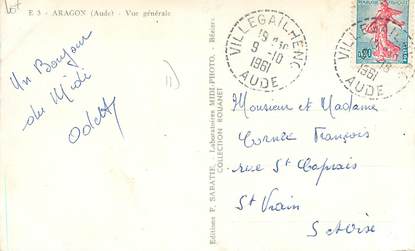 E 3 - ARAGON (Aude) - Vue générale
Un Bonjour
du Midi
Odette
Editions P. SABATIE. - Laboratoires MIDI-PHOTO. - Béziers.
COLLECTION ROUANET
VILLEGAILHENC
9-10
1961
AUDE
0,20
1961
AUDE
Monsieur et Madame
Cornée François
rue St Caprais
St Vrain
S et Oise